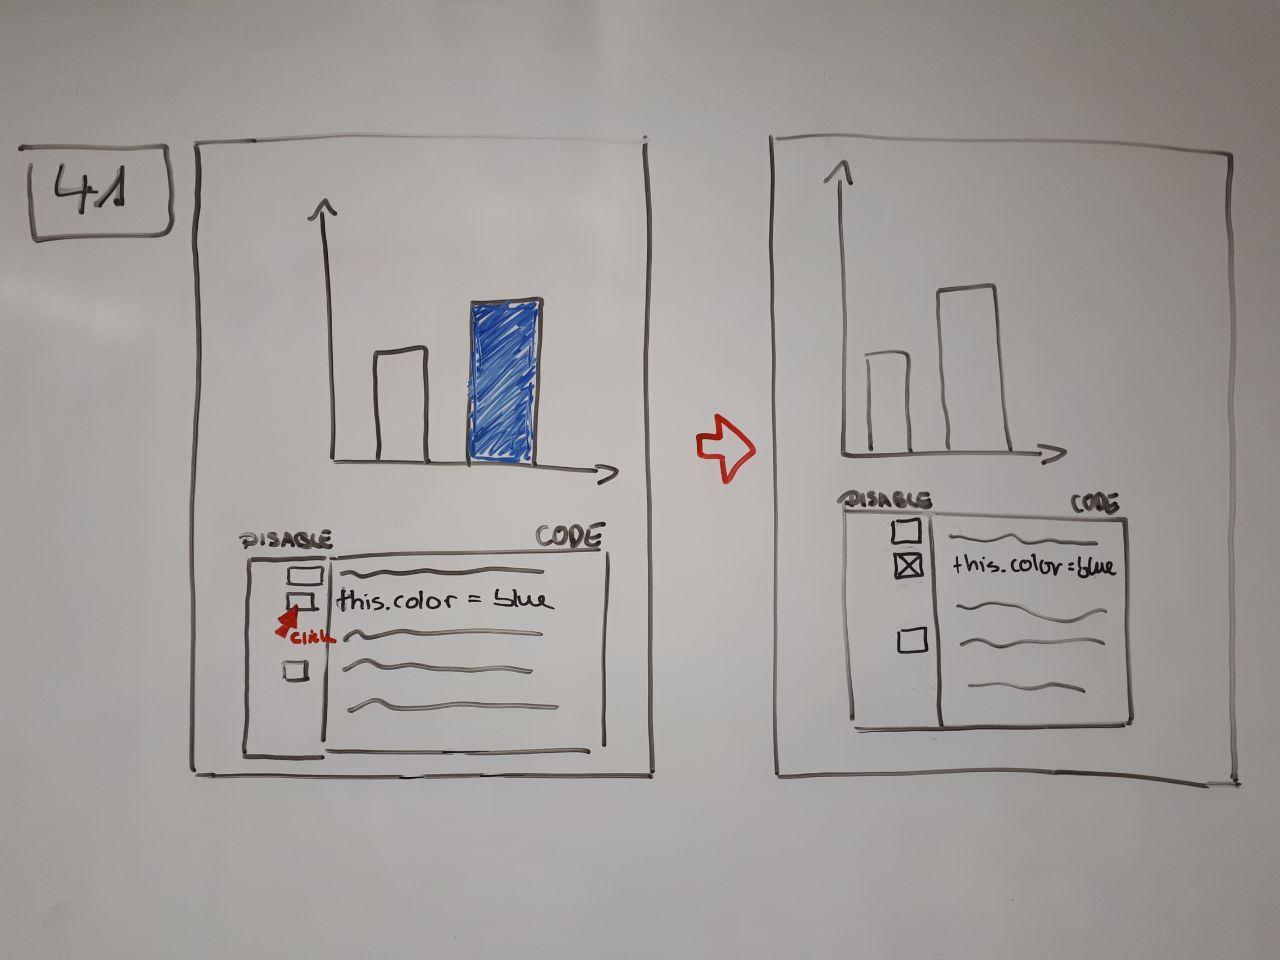 41
DISABLE CODE
this.color = blue
click
DISABLE CODE
this.color = blue